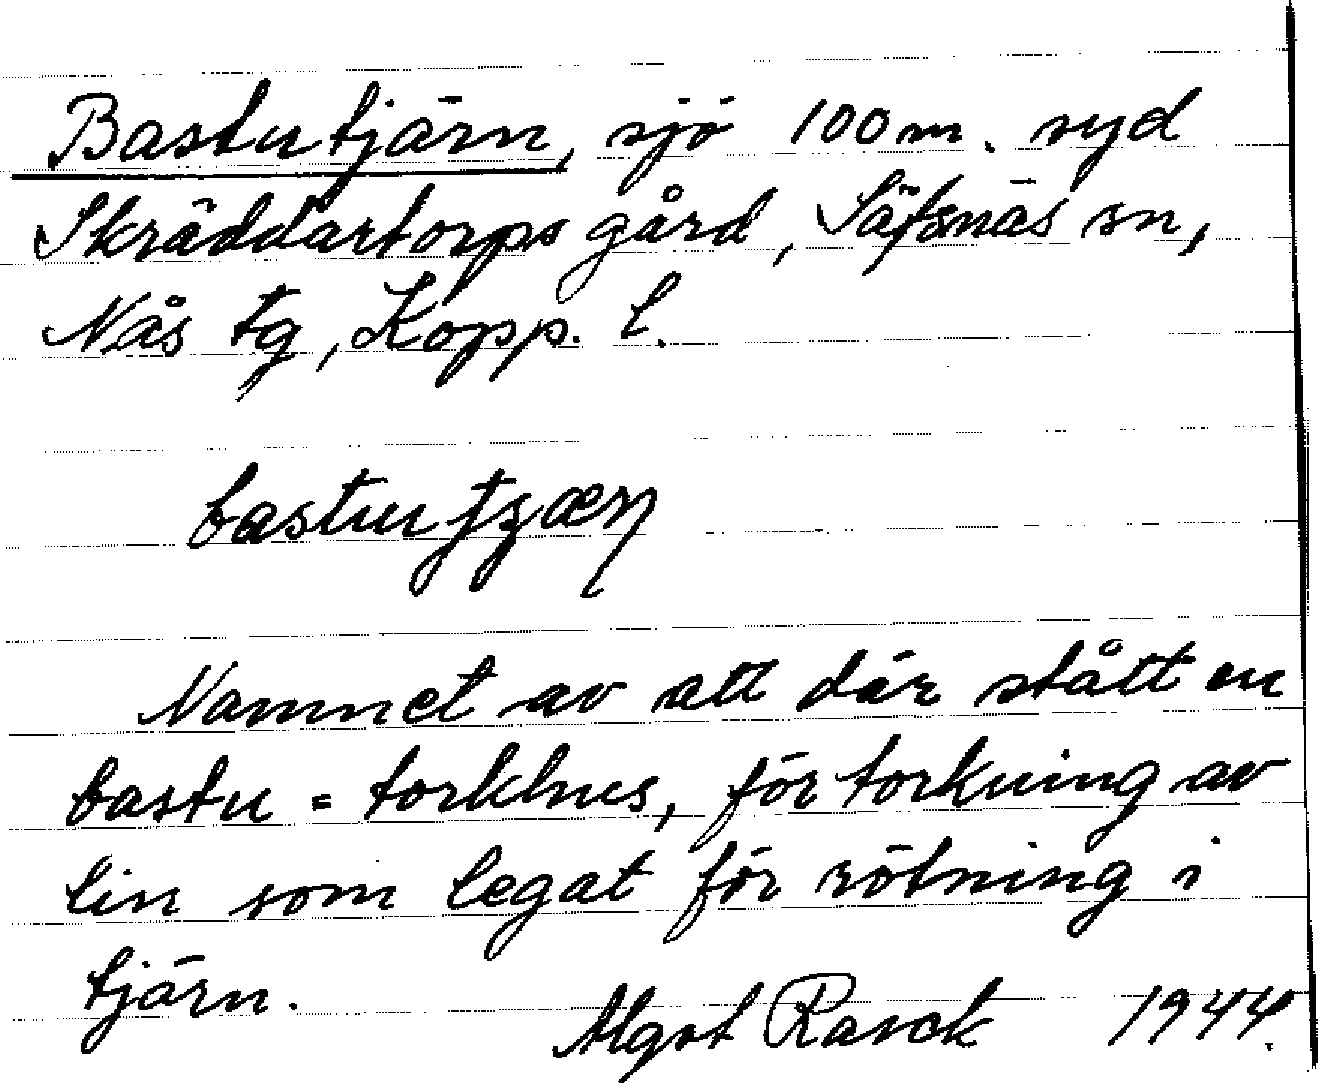 Bastutjärn, sjö 100 m. syd
Skräddartorps gård, Säfsnäs sn,
Nås tg, Kopp. l.
bastu
Namnet av att där stått en
bastu = torkhus, för torkning av
lin som legat för rötning i
tjärn.
Algot Rasck 1944.